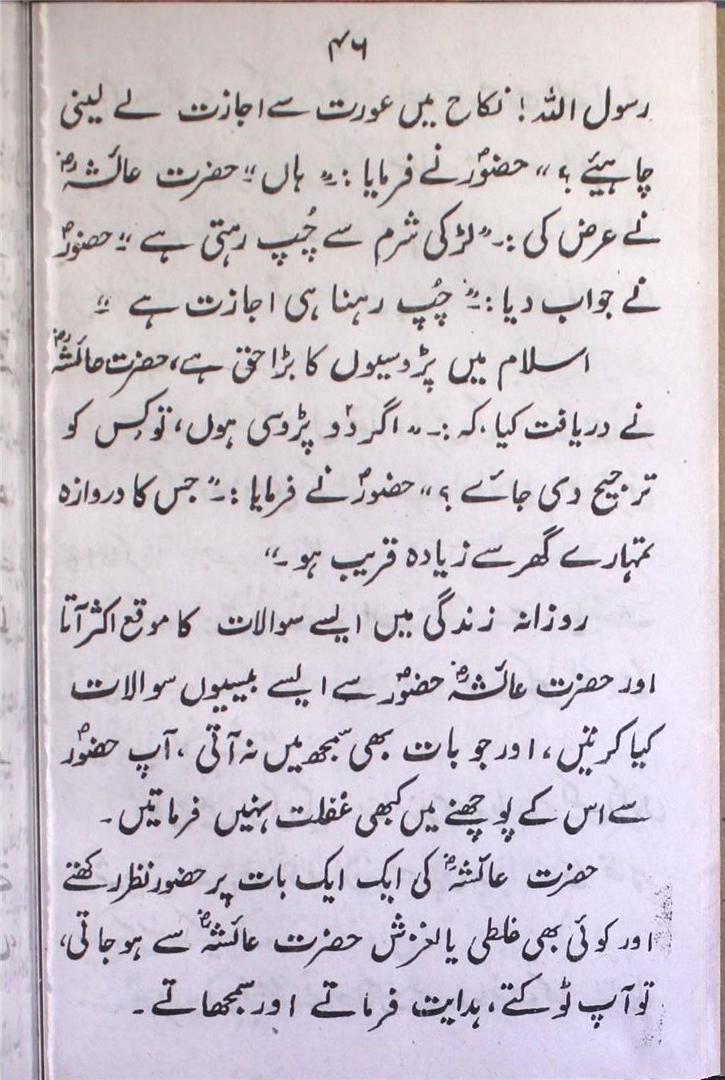 ۴۶
رسول اللہ! نکاح میں عورت سے اجازت لے لینی
چاہیئے؟" حضورؐ نے فرمایا :۔" ہاں "حضرت عائشہؓ
نے عرض کی :۔"لڑکی شرم سے چُپ رہتی ہے "حضورؐ
نے جواب دیا :۔" چُپ رہنا ہی اجازت ہے "
اسلام میں پڑوسیوں کا بڑا حق ہے، حضرت عائشہؓ
نے دریافت کیا، کہ :۔ "اگر دو پڑوسی ہوں، تو کس کو
ترجیح دی جائے؟" حضورؐ نے فرمایا :۔" جس کا دروازہ
تمہارے گھر سے زیادہ قریب ہو۔"
روزانہ زندگی میں ایسے سوالات کا موقع اکثر آتا
اور حضرت عائشہؓ حضورؐ سے ایسے بیسیوں سوالات
کیا کرتیں، اور جو بات بھی سمجھ میں نہ آتی، آپ حضورؐ
سے اس کے پوچھنے میں کبھی غفلت نہیں فرماتیں۔
حضرت عائشہؓ کی ایک ایک بات پر حضور نظر رکھتے
اور کوئی بھی غلطی یا لغزش حضرت عائشہؓ سے ہو جاتی،
تو آپ ٹوکتے، ہدایت فرماتے اور سمجھاتے۔